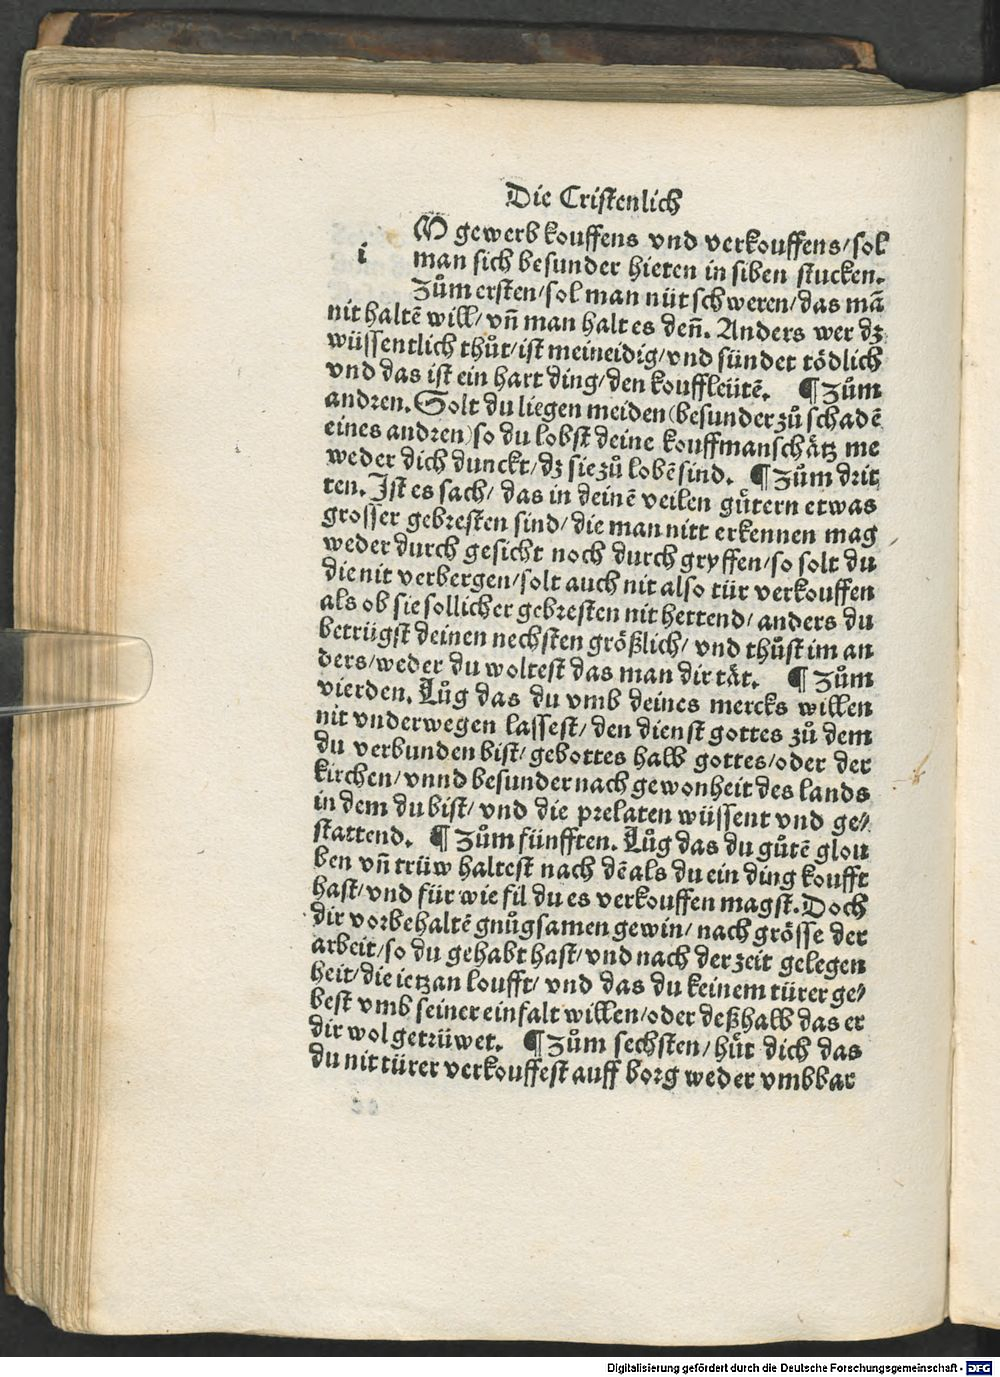 Die Cristenlich
i
M gewerb kouffens vnd verkouffens/sol
man sich besunder hieten in siben stucken.
Zům ersten/sol man nüt schweren/das mā
nit haltē will/vn̄ man halt es den̄. Anders wer dʒ
wüssentlich thůt/ist meineidig/vnd sündet tödlich
vnd das ist ein hart ding/den kouffleütē. ¶ Zům
andren. Solt du liegen meiden (besunder zů schadē
eines andren) so du lobst deine kouffmanschätz me
weder dich dunckt/dʒ sie zů lobē sind. ¶ Zům drit
ten. Ist es sach/ das in deinē veilen gůtern etwas
grosser gebresten sind/die man nitt erkennen mag
weder durch gesicht noch durch gryffen/so solt du
die nit verbergen/solt auch nit also tür verkouffen
als ob sie sollicher gebresten nit hettend/anders du
betrügst deinen nechsten größlich/ vnd thůst im an
ders/weder du woltest das man dir tät. ¶ Zům
vierden. Lůg das du vmb deines mercks willen
nit vnderwegen lassest/den dienst gottes zů dem
du verbunden bist/gebottes halb gottes/oder der
kirchen/vnnd besunder nach gewonheit des lands
in dem du bist/vnd die prelaten wüssent vnd ge/
stattend. ¶ Zům fünfften. Lůg das du gůtē glou
ben vn̄ trüw haltest nach dē als du ein ding koufft
hast/vnd für wie fil du es verkouffen magst. Doch
dir vorbehaltē gnůgsamen gewin/nach grösse der
arbeit/so du gehabt hast/vnd nach der zeit gelegen
heit/die ietzan loufft/ vnd das du keinem türer ge/
best vmb seiner einfalt willen/oder deßhalb das er
dir wol getrüwet. ¶ Zům sechsten/hüt dich das
du nit türer verkouffest auff borg weder vmb bar
Digitalisierung gefördert durch die Deutsche Forschungsgemeinschaft - DFG